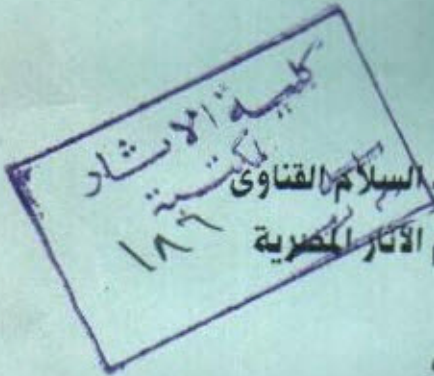 كلية الآثار
مكتبة
١٨٩
السلام القناوى
الآثار المصرية